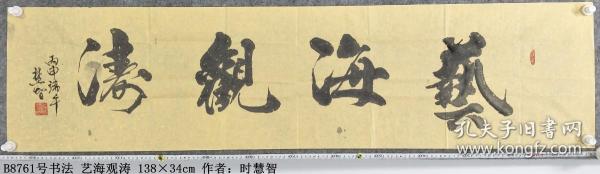 藝海觀濤
丙申端午
慧智
孔夫子旧书网
B8761号书法 艺海观涛 138×34cm 作者：时慧智